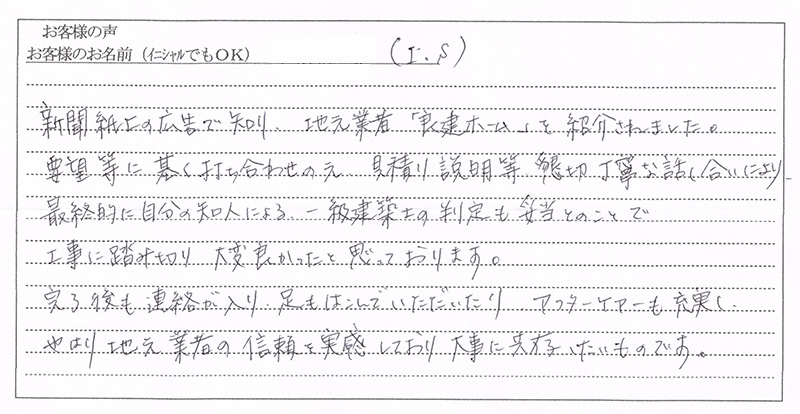 お客様の声
お客様のお名前（イニシャルでもOK） (I.S)
新聞紙上の広告で知り、地元業者「良建ホーム」を紹介されました。
要望等に基く打ち合わせのうえ 見積り説明等 懇切丁寧な話し合いにより
最終的に自分の知人による 一級建築士の判定も妥当とのことで
工事に踏み切り 大変良かったと思っております。
完了後も連絡が入り、足もはこんでいただいたり アフターケアーも充実し、
やはり地元業者の信頼を実感しており大事に共存したいものです。